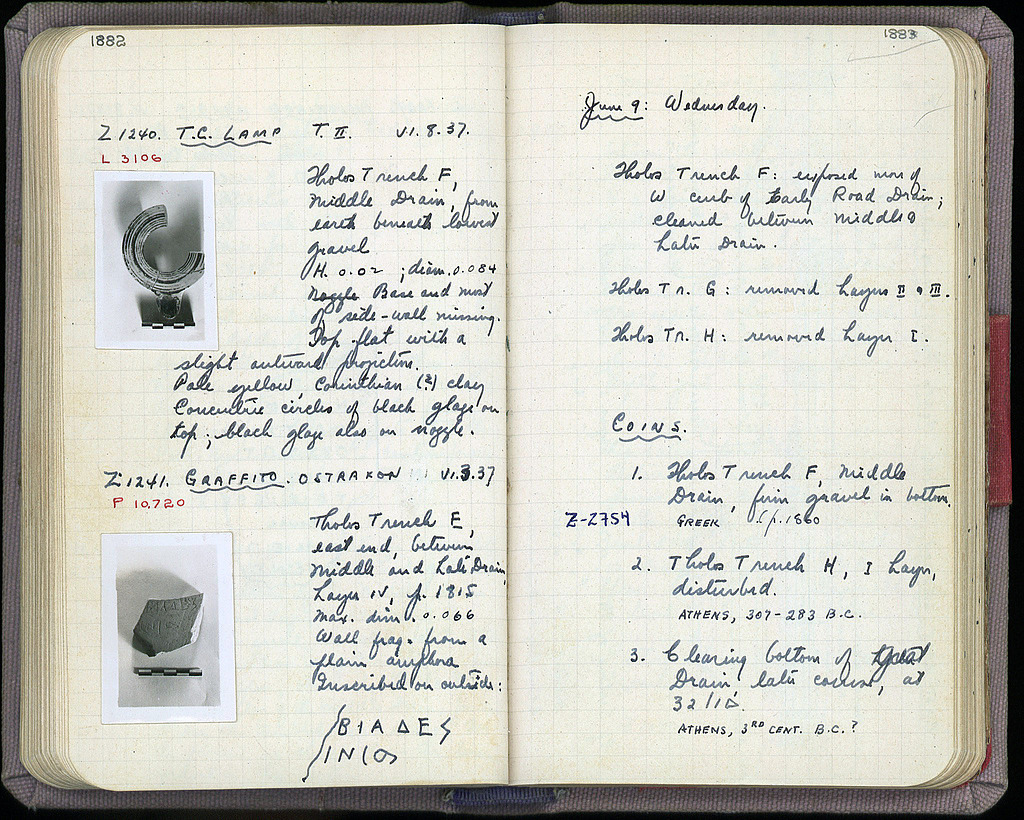 1882
Z 1240. T.C. LAMP T. II. VI. 8. 37.
L 3106
Tholos Trench F,
Middle Drain, from
earth beneath lowest
gravel
H. 0.02 ; diam. 0.084
Nozzle Base and most
of side-wall missing.
Top flat with a
slight outward projection.
Pale yellow, Corinthian (?) clay
Concentric circles of black glaze on
top; black glaze also on nozzle.
Z 1241. GRAFFITO. OSTRAKON VI. 3. 37
P 10,720
Tholos Trench E,
east end, between
Middle and Late Drain,
Layer IV, p. 1815
Max. dim. 0.066
Wall frag. from a
plain amphora
Inscribed on outside:
ΒΙΑΔΕS
ΙΝΙΟ
1883
June 9: Wednesday.
Tholos Trench F: exposed more of
W curb of Early Road Drain;
cleaned between Middle &
Late Drain.
Tholos Tr. G: removed Layers II & III.
Tholos Tr. H: removed Layer I.
COINS.
1. Tholos Trench F, Middle
Drain, firm gravel in bottom.
Z-2754 GREEK Cf. p. 1860
2. Tholos Trench H, I Layer,
disturbed.
ATHENS, 307-283 B.C.
3. Clearing bottom of Great
Drain, late course, at
32/ΙΔ.
ATHENS, 3RD CENT. B.C.?